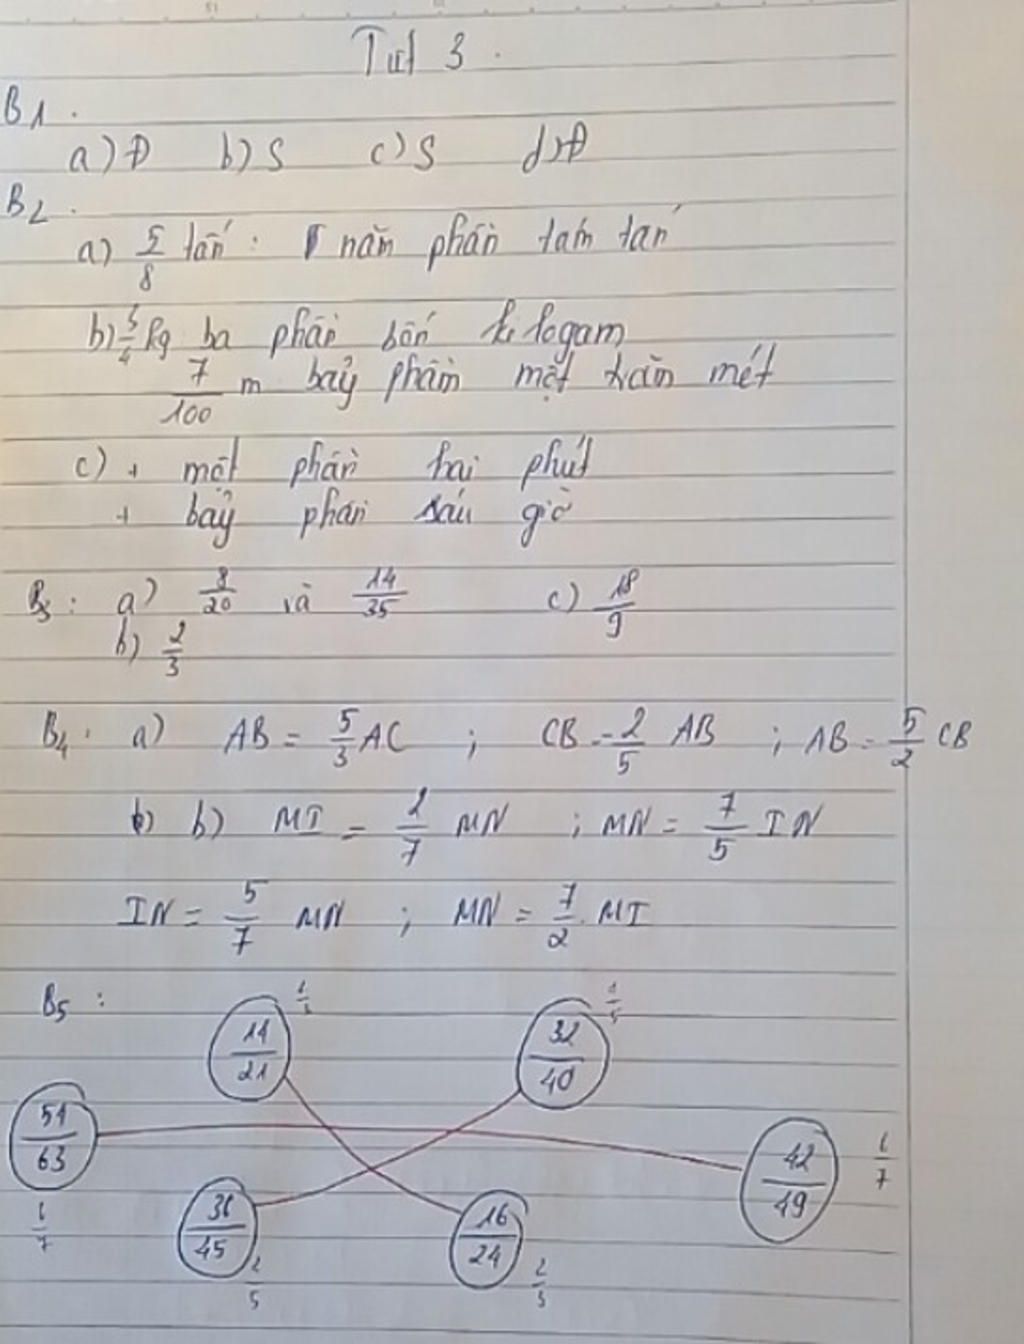 Tiết 3.
B1.
a) Đ b) S c) S d) Đ
B2.
a) 5/8 tấn: năm phần tám tấn
b) 3/4 kg ba phần bốn ki lôgam
7/100 m bảy phần một trăm mét
c) + một phần hai phút
+ bảy phần sáu giờ
B3: a) 8/20 và 14/35 c) 18/9
b) 2/3
B4. a) AB = 5/3 AC ; CB = 2/5 AB ; AB = 5/2 CB
b) MI = 2/7 MN ; MN = 7/5 IN
IN = 5/7 MN ; MN = 7/2 MI
B5:
14/21 32/40
54/63 42/49 6/7
6/7 36/45 16/24